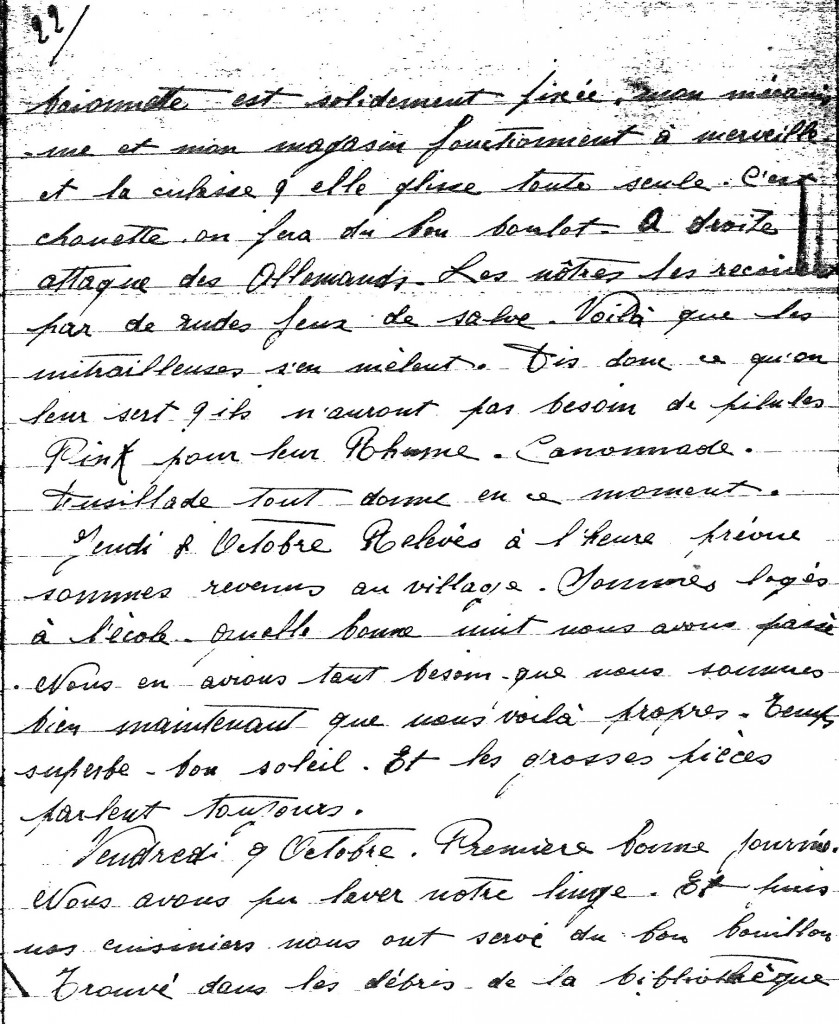 22/
baïonnette est solidement fixée, mon mécanis
-me et mon magasin fonctionnent à merveille
et la culasse q elle glisse toute seule. C'est
chouette on fera du bon boulot. A droite
attaque des Allemands. Les nôtres les reçoivent
par de rudes feux de salve. Voilà que les
mitrailleuses s'en mêlent. Dis donc ce qu'on
leur sert q ils n'auront pas besoin de pilules
Pink pour leur Rhume. Canonnade.
Fusillade tout donne en ce moment.
Jeudi 8 Octobre Relevés à l'heure prévue
sommes revenus au village. Sommes logés
à l'école. quelle bonne nuit nous avons passé
. Nous en avions tant besoin. que nous sommes
bien maintenant que nous voilà propres. Temps
superbe - bon soleil. Et les grosses pièces
parlent toujours.
Vendredi 9 Octobre. Première bonne journée.
Nous avons pu laver notre linge. Et puis
nos cuisiniers nous ont servé du bon bouillon
Trouvé dans les débris de la bibliothèque